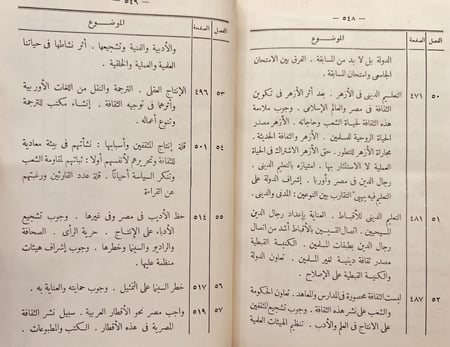 — ٥٤٨ —
الفصل الصفحة الموضوع
الدولة بل لا بد من المسابقة . الفرق بين الامتحان
الجامعى وامتحان المسابقة .
٥٠ ٤٧١ التعليم الدينى فى الأزهر . بعد أثر الأزهر فى تكوين
الثقافة فى مصر والعالم الإسلامى . وجوب ملاءمة
هذه الثقافة لحياة الشعب وحاجاته . الأزهر مصدر
الحياة الروحية للمسلمين . الأزهر والثقافة الحديثة .
مجاراة الأزهر للتطور . حق الأزهر الاشتراك فى الحياة
العملية لا الاستئثار بها . امتيازه بالتعليم الدينى .
رجال الدين فى مصر وأوربا . إشراف الدولة على
التعليم فيه ينهى التقارب بين النوعين : المدنى والدينى .
٥١ ٤٨١ التعليم الدينى للأقباط . العناية بإعداد رجال الدين
المسيحيين . اتصال القسيسين بالأقباط أشد من اتصال
رجال الدين بطبقات المسلمين . الكنيسة القبطية
مصدر ثقافة دينية لغير المسلمين . تعاون الدولة
والكنيسة القبطية على الإصلاح .
٥٢ ٤٨٧ ليست الثقافة محصورة فى المدارس والمعاهد . تعاون الحكومة
والشعب على نشر هذه الثقافة . وجوب تشجيع المثقفين
على الانتاج فى العلم والأدب . تنظيم الهيئات العلمية
— ٥٤٩ —
الفصل الصفحة الموضوع
والأدبية والفنية وتشجيعها . أثر نشاطها فى حياتنا
العلمية والعملية والخلقية .
٥٣ ٤٩٦ الإنتاج العقلى . الترجمة والنقل من اللغات الأوربية
وأثرهما فى توجيه الثقافة . إنشاء مكتب للترجمة
وتنوع أعماله .
٥٤ ٥٠١ قلة إنتاج المثقفين وأسبابها : نشأتهم فى بيئة معادية
للثقافة وتحريرهم لأنفسهم أولا : ثباتهم لمقاومة الشعب
وتنكر السياسة أحيانا . قلة عدد القارئين ورغبتهم
عن القراءة
٥٥ ٥١٤ حظ الأديب فى مصر وفى غيرها . وجوب تشجيع
الأدباء على الإنتاج . حرية الرأى . الصحافة
والراديو والسينما وخطرها . وجوب إشراف هيئات
منظمة عليها .
٥٦ ٥١٧ خطر السينما على التمثيل . وجوب حمايته والعناية به .
٥٧ ٥١٩ واجب مصر نحو الأقطار العربية . سبيل نشر الثقافة
المصرية فى هذه الأقطار . الكتب والمطبوعات .